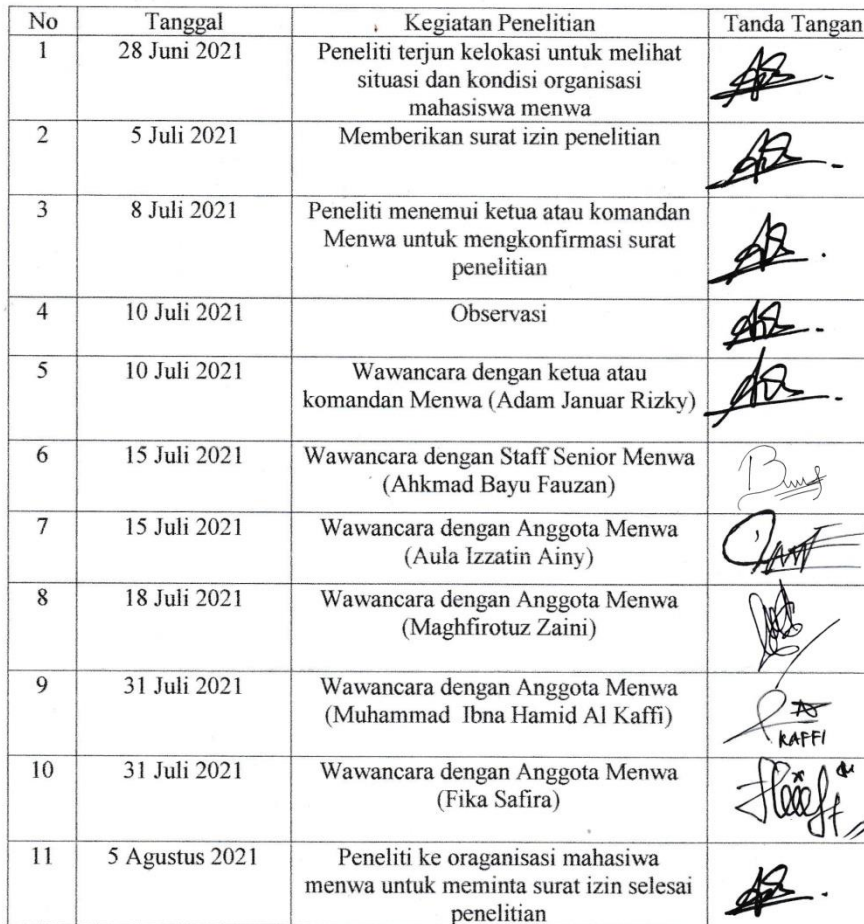 No Tanggal Kegiatan Penelitian Tanda Tangan
1 28 Juni 2021 Peneliti terjun kelokasi untuk melihat
situasi dan kondisi organisasi
mahasiswa menwa
2 5 Juli 2021 Memberikan surat izin penelitian
3 8 Juli 2021 Peneliti menemui ketua atau komandan
Menwa untuk mengkonfirmasi surat
penelitian
4 10 Juli 2021 Observasi
5 10 Juli 2021 Wawancara dengan ketua atau
komandan Menwa (Adam Januar Rizky)
6 15 Juli 2021 Wawancara dengan Staff Senior Menwa
(Ahkmad Bayu Fauzan)
7 15 Juli 2021 Wawancara dengan Anggota Menwa
(Aula Izzatin Ainy)
8 18 Juli 2021 Wawancara dengan Anggota Menwa
(Maghfirotuz Zaini)
9 31 Juli 2021 Wawancara dengan Anggota Menwa
(Muhammad Ibna Hamid Al Kaffi)
KAFFI
10 31 Juli 2021 Wawancara dengan Anggota Menwa
(Fika Safira)
11 5 Agustus 2021 Peneliti ke oraganisasi mahasiwa
menwa untuk meminta surat izin selesai
penelitian